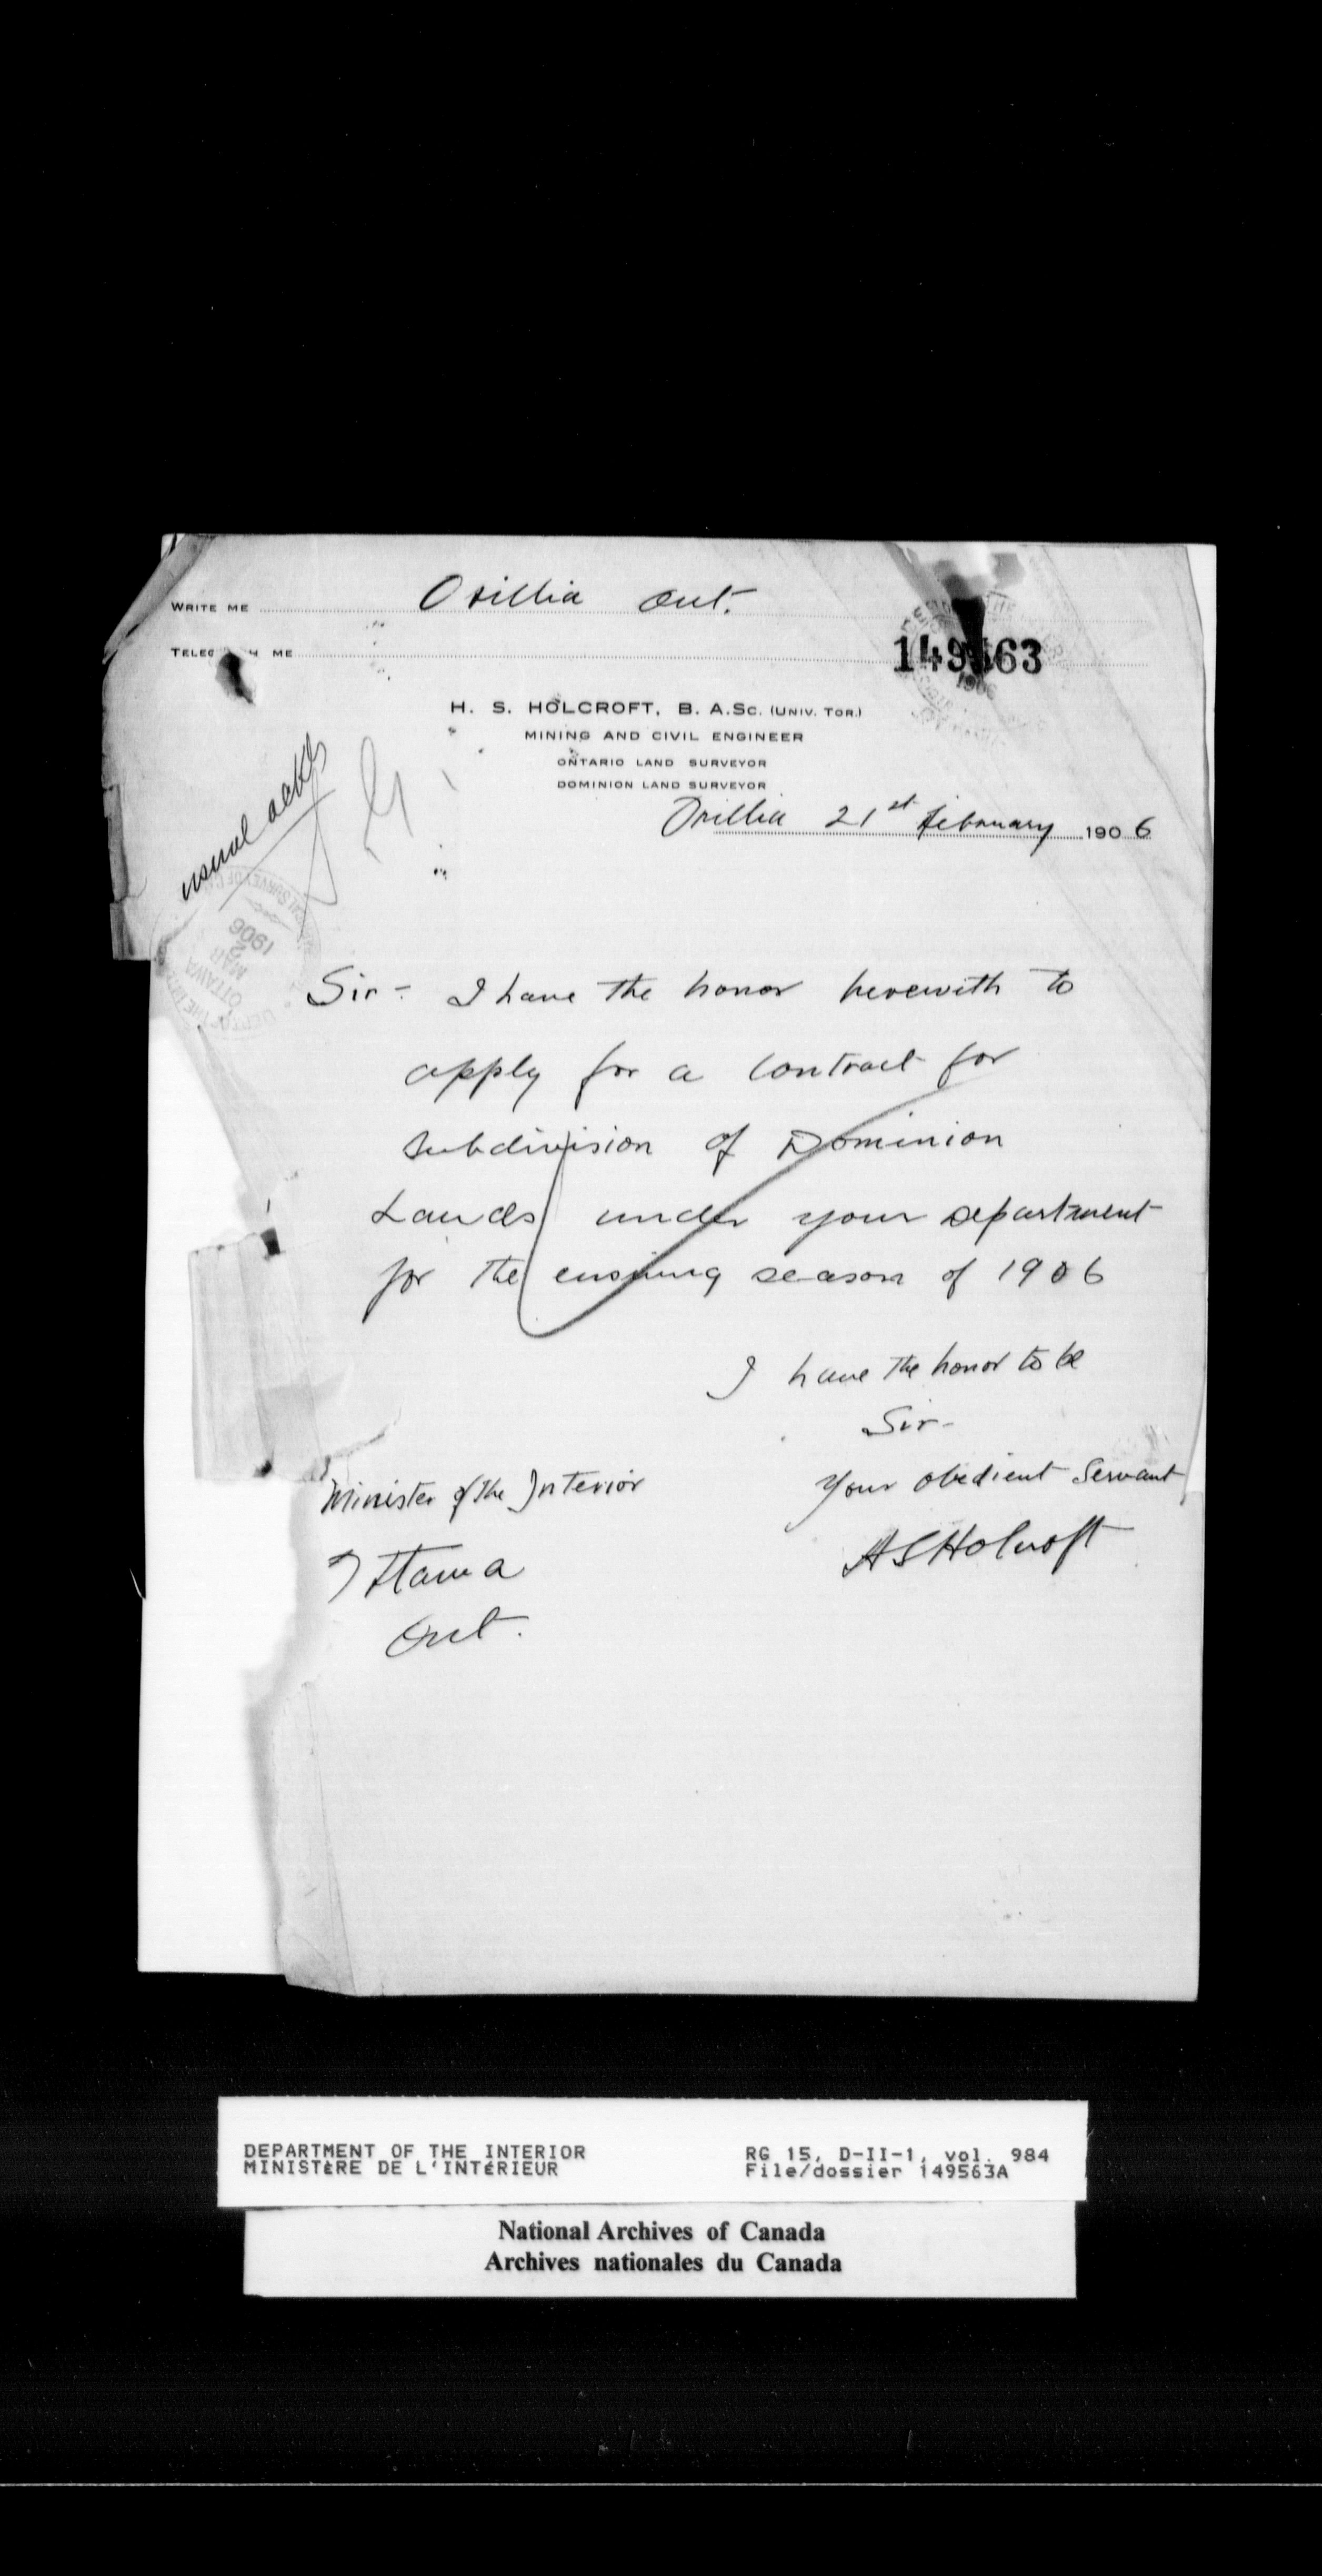 WRITE ME Orillia Ont.
TELEG H ME
149563
H. S. HOLCROFT, B. A.Sc. (UNIV. TOR.)
MINING AND CIVIL ENGINEER
ONTARIO LAND SURVEYOR
DOMINION LAND SURVEYOR
Orillia 21st February 1906
usual
OTTAWA
MAR
2
1906
Sir - I have the honor herewith to
apply for a contract for
subdivision of Dominion
Lands under your department
for the ensuing season of 1906
I have the honor to be
Sir-
Your obedient Servant
HSHolcroft
Minister of the Interior
Ottawa
Ont.
DEPARTMENT OF THE INTERIOR
MINISTÈRE DE L'INTÉRIEUR
RG 15, D-II-1, vol. 984
File/dossier 149563A
National Archives of Canada
Archives nationales du Canada